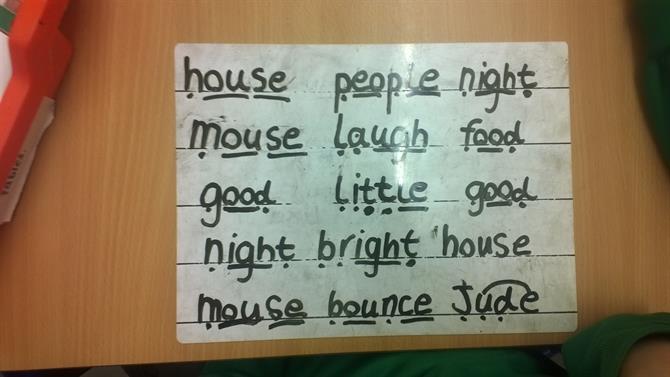 house people night
mouse laugh food
good little good
night bright house
mouse bounce Jude